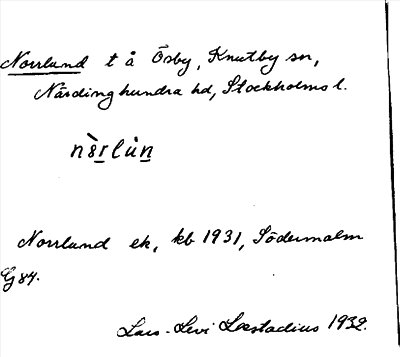 Norrlund t å Ösby, Knutby sn,
Närdinghundra hd, Stockholms l.
nòrlùn
Norrlund ek, kb 1931, Södermalm
G 84.
Lars-Levi Læstadius 1932.